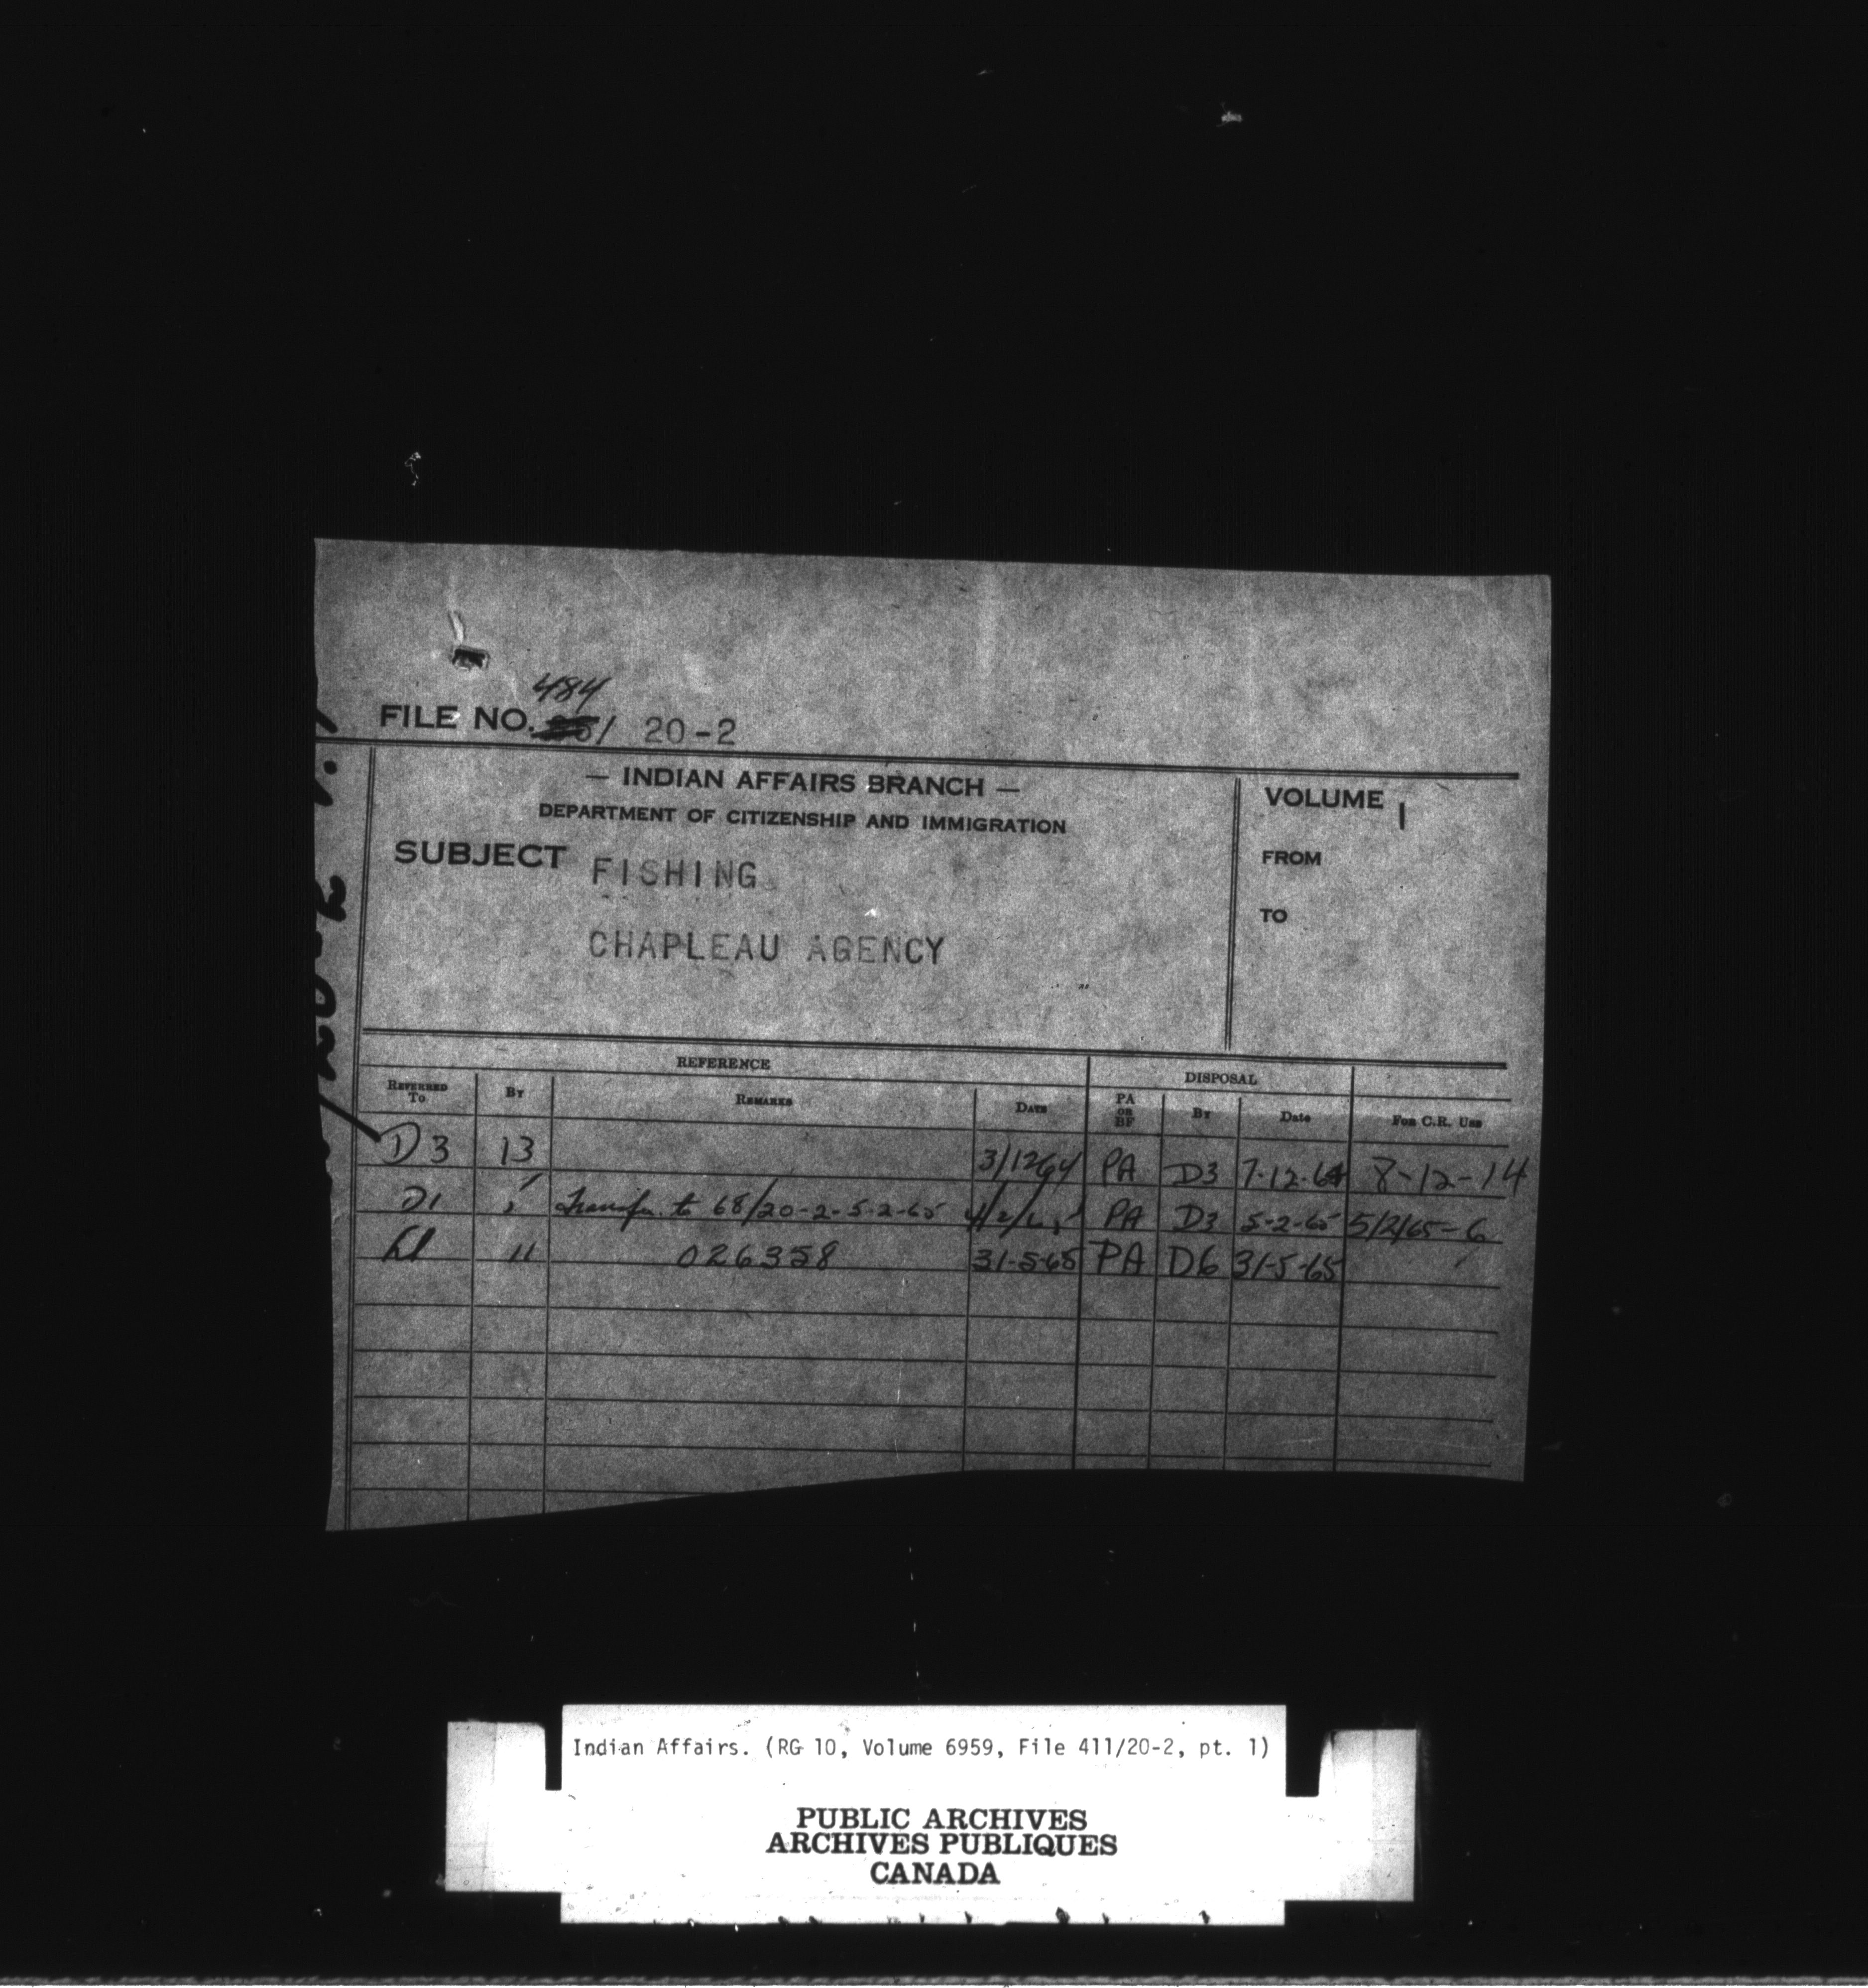 484
FILE NO. / 20-2
— INDIAN AFFAIRS BRANCH —
DEPARTMENT OF CITIZENSHIP AND IMMIGRATION
SUBJECT FISHING
CHAPLEAU AGENCY
VOLUME 1
FROM
TO
REFERENCE
DISPOSAL
REFERRED TO BY REMARKS DATE PA OR BF BY Date FOR C.R. USE
D3 13 3/12/64 PA D3 7-12-64 8-12-14
D1 Transfer to 68/20-2-5-2-65 PA D3 5-2-65 5/2/65-6
11 026358 31-5-65 PA D6 31-5-65
Indian Affairs. (RG 10, Volume 6959, File 411/20-2, pt. 1)
PUBLIC ARCHIVES
ARCHIVES PUBLIQUES
CANADA